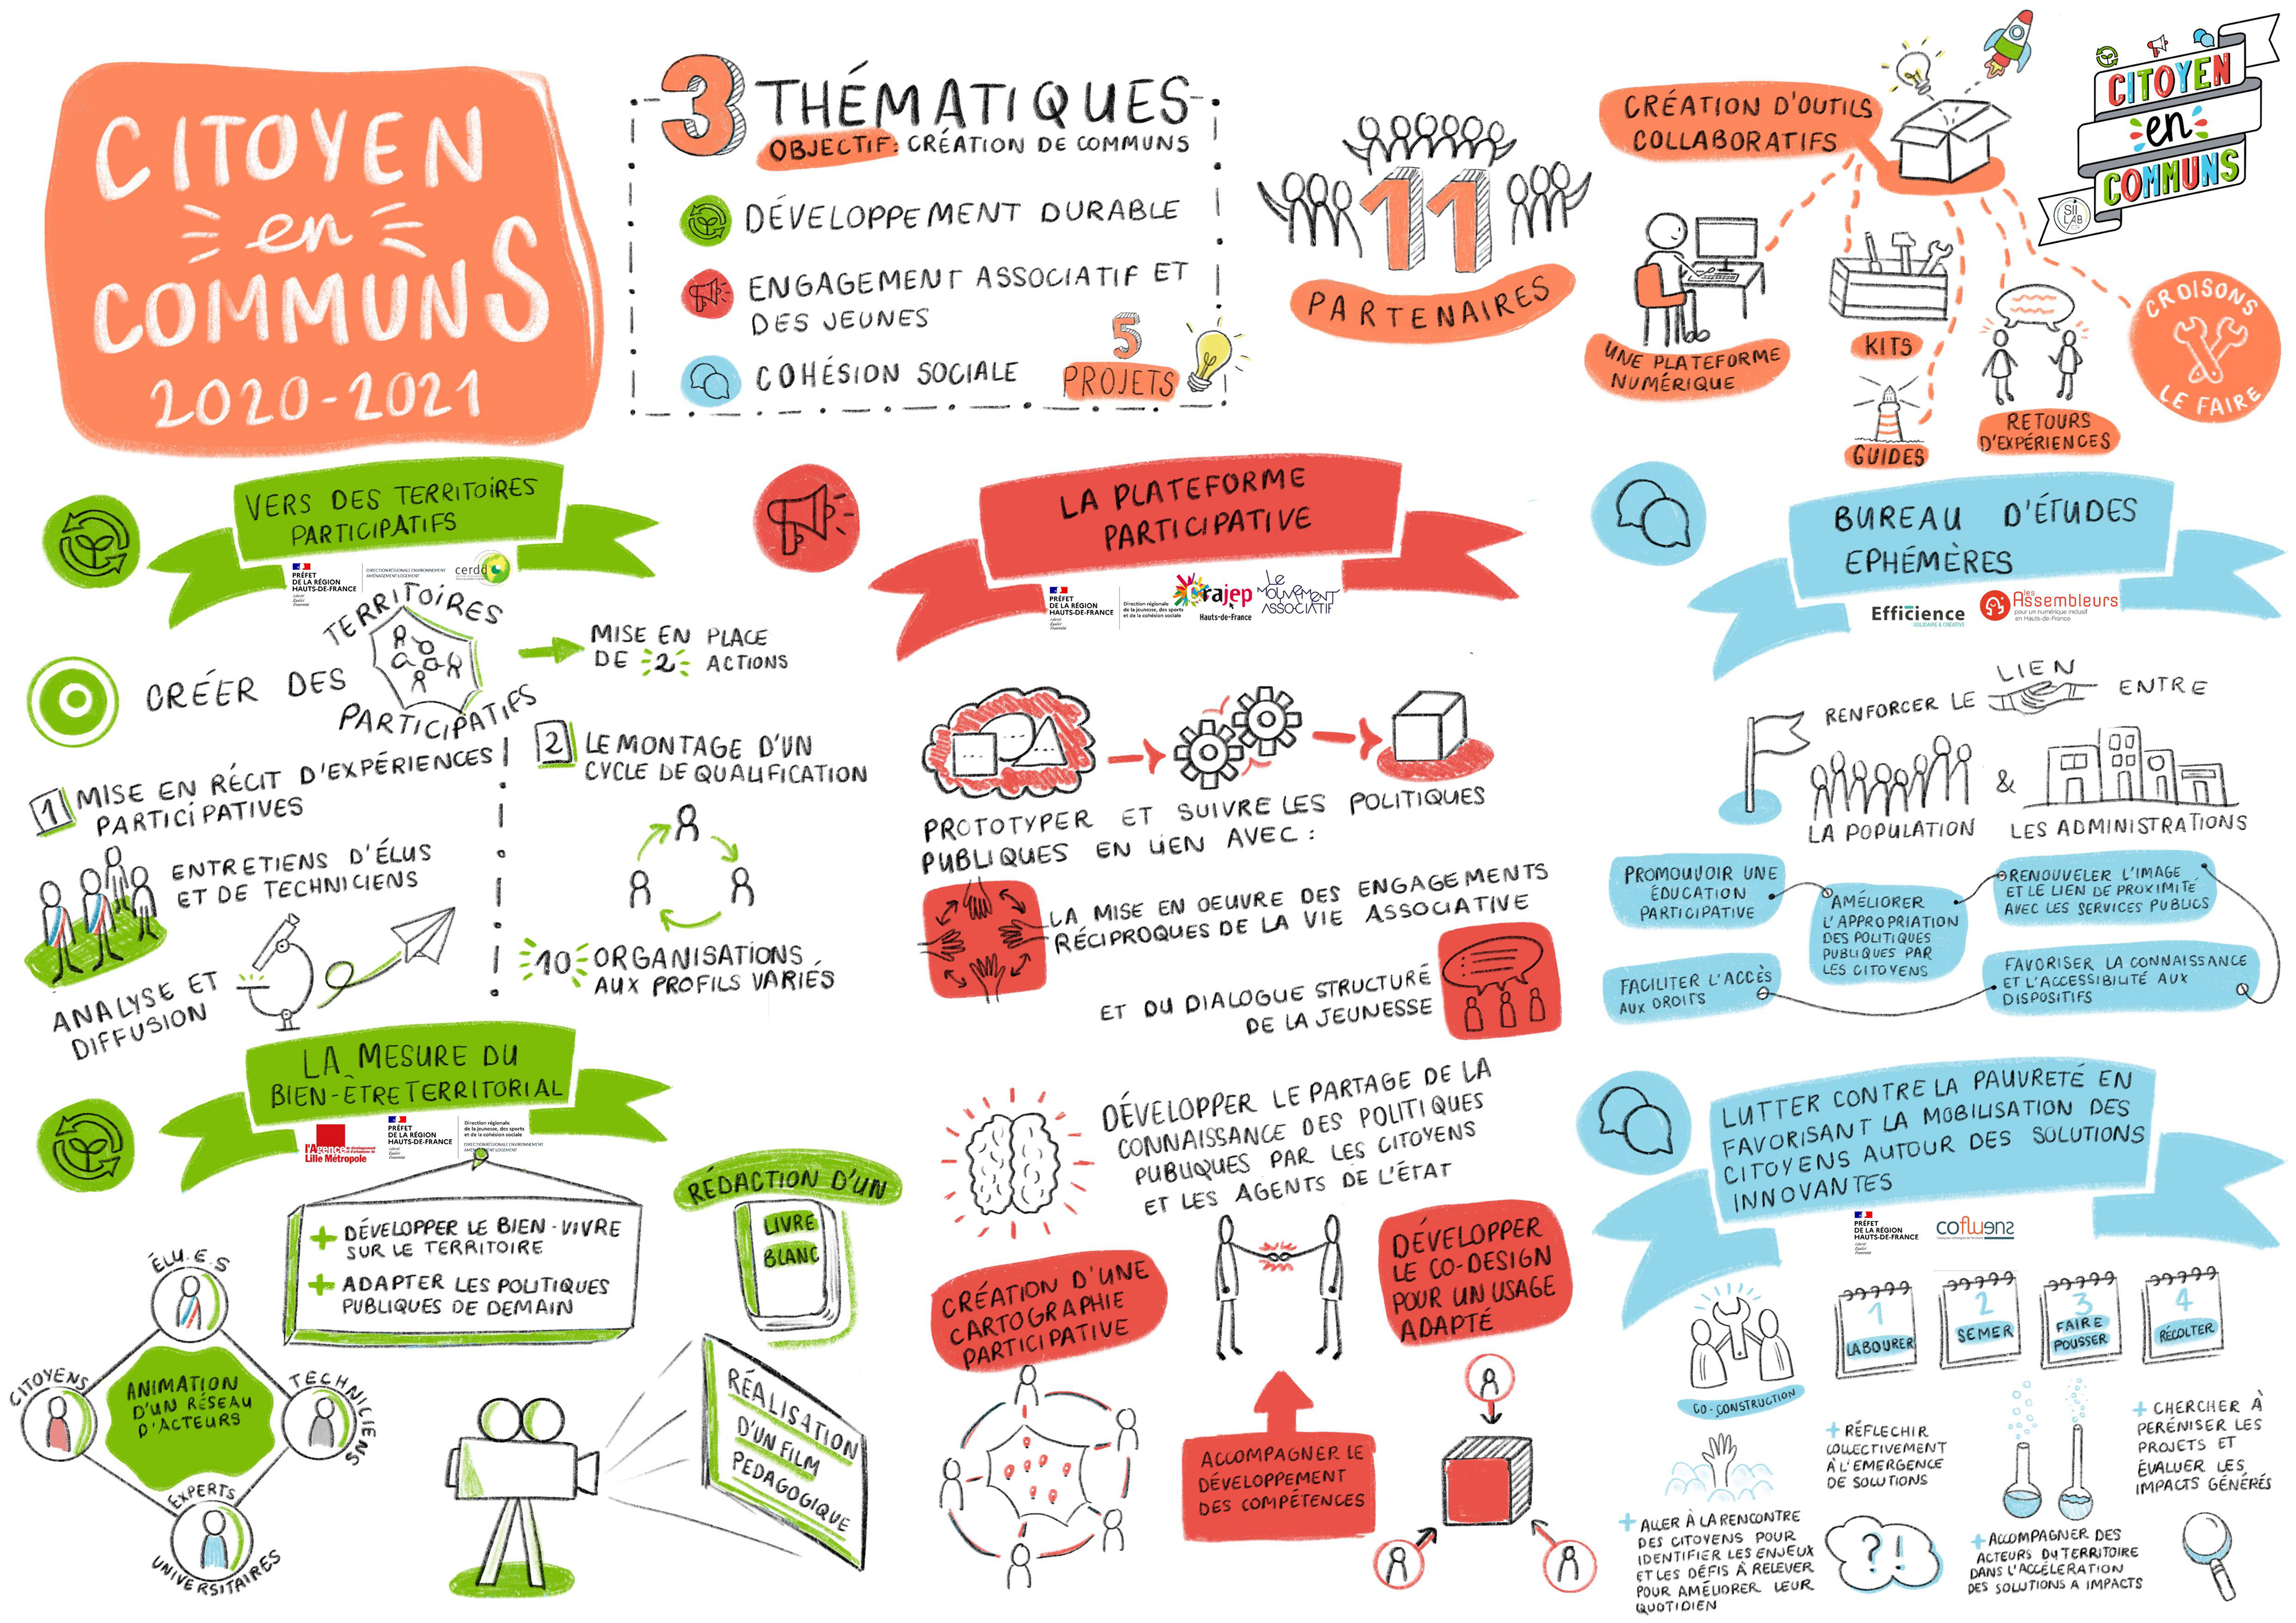 CITOYEN
en
COMMUNS
2020-2021
3 THÉMATIQUES
OBJECTIF: CRÉATION DE COMMUNS
DÉVELOPPEMENT DURABLE
ENGAGEMENT ASSOCIATIF ET
DES JEUNES
COHÉSION SOCIALE
5
PROJETS
11
PARTENAIRES
CRÉATION D'OUTILS
COLLABORATIFS
UNE PLATEFORME
NUMÉRIQUE
KITS
GUIDES
RETOURS
D'EXPÉRIENCES
CROISONS
LE FAIRE
CITOYEN
en
COMMUNS
SIILAB
VERS DES TERRITOIRES
PARTICIPATIFS
PRÉFET
DE LA RÉGION
HAUTS-DE-FRANCE
Liberté
Égalité
Fraternité
DIRECTION RÉGIONALE ENVIRONNEMENT
AMÉNAGEMENT LOGEMENT
cerdd
CRÉER DES
TERRITOIRES
PARTICIPATIFS
MISE EN PLACE
DE 2 ACTIONS
1 MISE EN RÉCIT D'EXPÉRIENCES
PARTICIPATIVES
ENTRETIENS D'ÉLUS
ET DE TECHNICIENS
ANALYSE ET
DIFFUSION
2 LE MONTAGE D'UN
CYCLE DE QUALIFICATION
10 ORGANISATIONS
AUX PROFILS VARIÉS
LA MESURE DU
BIEN-ÊTRE TERRITORIAL
l'Agence
Lille Métropole
PRÉFET
DE LA RÉGION
HAUTS-DE-FRANCE
Liberté
Égalité
Fraternité
Direction régionale
de la jeunesse, des sports
et de la cohésion sociale
DIRECTION RÉGIONALE ENVIRONNEMENT
AMÉNAGEMENT LOGEMENT
+ DÉVELOPPER LE BIEN-VIVRE
SUR LE TERRITOIRE
+ ADAPTER LES POLITIQUES
PUBLIQUES DE DEMAIN
RÉDACTION D'UN
LIVRE
BLANC
ÉLU.E.S
CITOYENS
TECHNICIENS
EXPERTS
UNIVERSITAIRES
ANIMATION
D'UN RÉSEAU
D'ACTEURS
RÉALISATION
D'UN FILM
PEDAGOGIQUE
LA PLATEFORME
PARTICIPATIVE
PRÉFET
DE LA RÉGION
HAUTS-DE-FRANCE
Liberté
Égalité
Fraternité
Direction régionale
de la jeunesse, des sports
et de la cohésion sociale
Crajep
Hauts-de-France
Le
MOUVEMENT
ASSOCIATIF
PROTOTYPER ET SUIVRE LES POLITIQUES
PUBLIQUES EN LIEN AVEC :
LA MISE EN OEUVRE DES ENGAGEMENTS
RÉCIPROQUES DE LA VIE ASSOCIATIVE
ET DU DIALOGUE STRUCTURÉ
DE LA JEUNESSE
DÉVELOPPER LE PARTAGE DE LA
CONNAISSANCE DES POLITIQUES
PUBLIQUES PAR LES CITOYENS
ET LES AGENTS DE L'ÉTAT
CRÉATION D'UNE
CARTOGRAPHIE
PARTICIPATIVE
ACCOMPAGNER LE
DÉVELOPPEMENT
DES COMPÉTENCES
DÉVELOPPER
LE CO-DESIGN
POUR UN USAGE
ADAPTÉ
BUREAU D'ÉTUDES
EPHÉMÈRES
Efficience
SOLIDAIRE & CRÉATIVE
les
Assembleurs
pour un numérique inclusif
en Hauts-de-France
RENFORCER LE LIEN ENTRE
LA POPULATION & LES ADMINISTRATIONS
PROMOUVOIR UNE
ÉDUCATION
PARTICIPATIVE
AMÉLIORER
L'APPROPRIATION
DES POLITIQUES
PUBLIQUES PAR
LES CITOYENS
RENOUVELER L'IMAGE
ET LE LIEN DE PROXIMITÉ
AVEC LES SERVICES PUBLICS
FACILITER L'ACCÈS
AUX DROITS
FAVORISER LA CONNAISSANCE
ET L'ACCESSIBILITÉ AUX
DISPOSITIFS
LUTTER CONTRE LA PAUVRETÉ EN
FAVORISANT LA MOBILISATION DES
CITOYENS AUTOUR DES SOLUTIONS
INNOVANTES
PRÉFET
DE LA RÉGION
HAUTS-DE-FRANCE
Liberté
Égalité
Fraternité
cofluens
CO-CONSTRUCTION
1
LABOURER
2
SEMER
3
FAIRE
POUSSER
4
RÉCOLTER
+ ALLER À LA RENCONTRE
DES CITOYENS POUR
IDENTIFIER LES ENJEUX
ET LES DÉFIS À RELEVER
POUR AMÉLIORER LEUR
QUOTIDIEN
+ RÉFLECHIR
COLLECTIVEMENT
À L'EMERGENCE
DE SOLUTIONS
?!
+ ACCOMPAGNER DES
ACTEURS DU TERRITOIRE
DANS L'ACCÉLERATION
DES SOLUTIONS A IMPACTS
+ CHERCHER À
PERÉNISER LES
PROJETS ET
ÉVALUER LES
IMPACTS GÉNÉRÉS